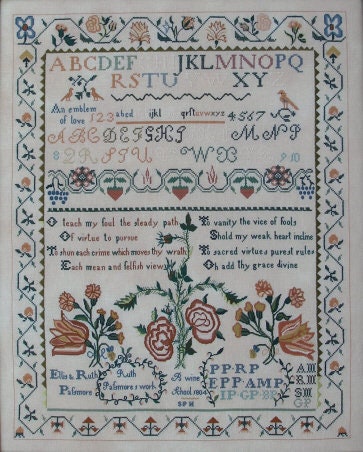 ABCDEF JKLMNOPQ
RSTU XY
An emblem
of love 123 abcd ijkl qrſtuvwxyz 4567
ABCDEFGHI MNP
8 2R STU WX 9 10
O teach my ſoul the ſteady path
Of virtue to purſue
To shun each crime which moves thy wrath
Each mean and ſelfish view
To vanity the vice of fools
Shold my weak heart incline
To sacred virtues purest rules
Oh add thy grace divine
Ellis & Ruth
Paſsmore
Ruth
Paſsmore s work
A wine
School 1804
SPM
PP·RP
EPP·AMP·
IP·GP·BP
AM
RM
SM
GP